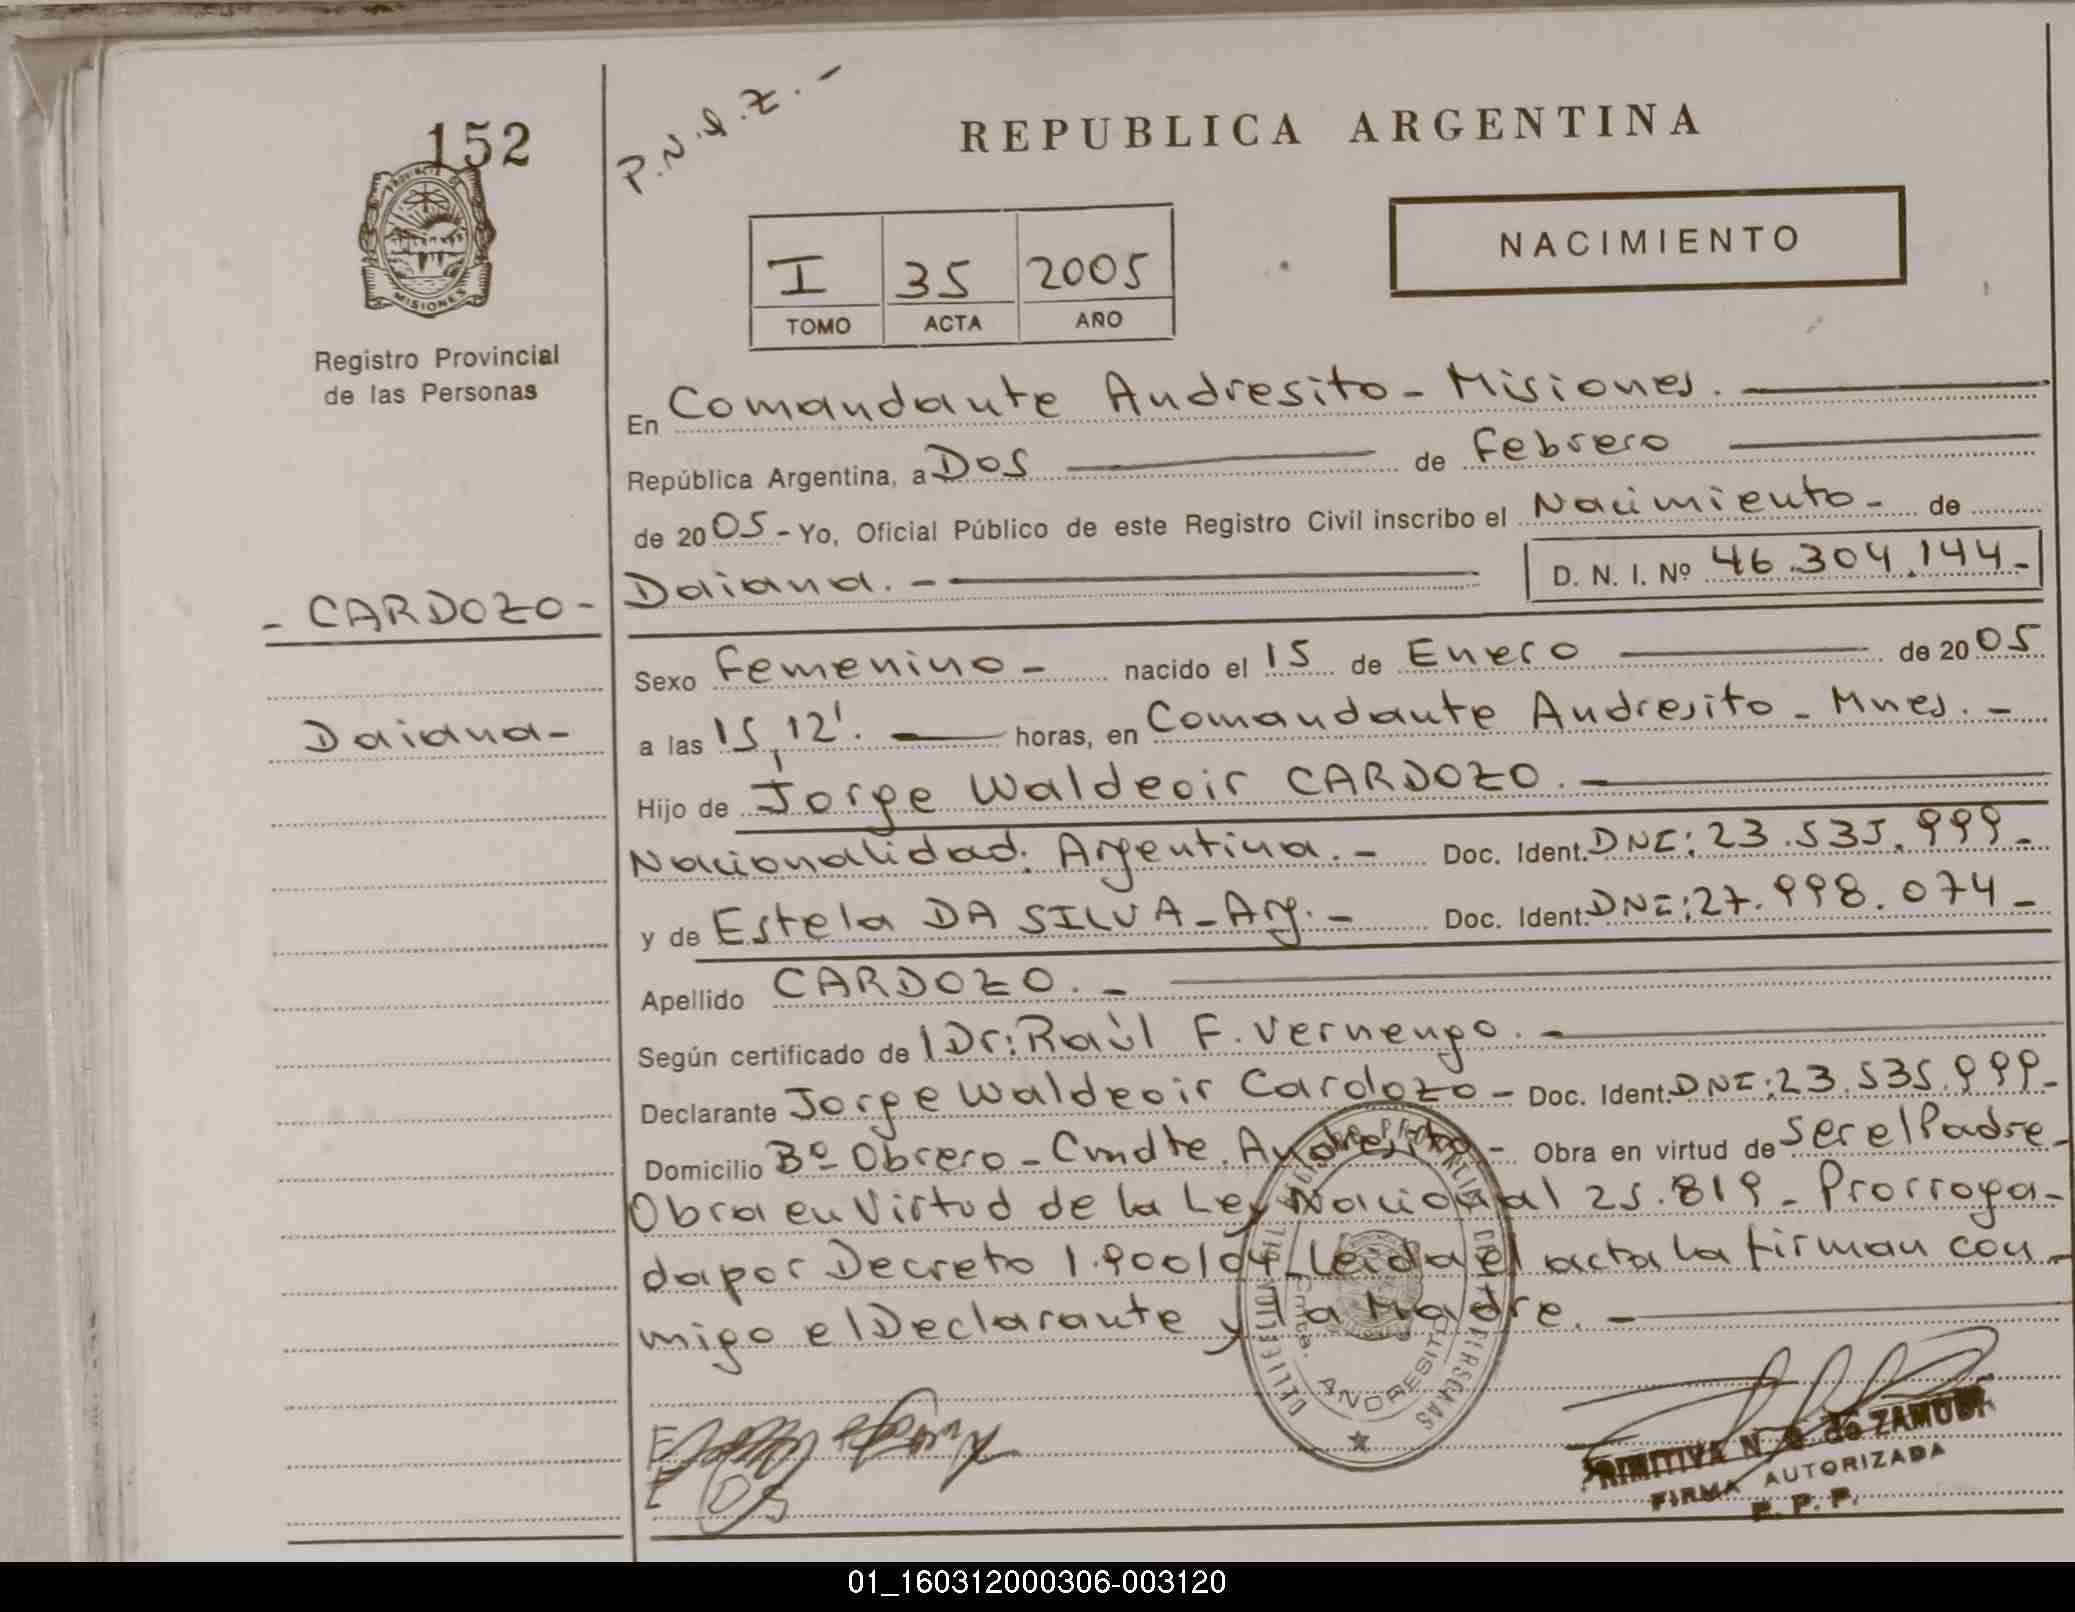 152
P.N.I.Z.-
REPUBLICA ARGENTINA
PROVINCIA DE
MISIONES
Registro Provincial
de las Personas
NACIMIENTO
I 35 2005
TOMO ACTA AÑO
En Comandante Andresito - Misiones.
República Argentina, a Dos de Febrero
de 2005 - Yo, Oficial Público de este Registro Civil inscribo el Nacimiento - de
- CARDOZO - Daiana. - D. N. I. Nº 46.304.144 -
Sexo Femenino - nacido el 15 de Enero de 2005
Daiana - a las 15,12'. horas, en Comandante Andresito - Mnes. -
Hijo de Jorge Waldeoir CARDOZO. -
Nacionalidad: Argentina. - Doc. Ident. DNI: 23.535.999 -
y de Estela DA SILVA - Arg. - Doc. Ident. DNI: 27.998.074 -
Apellido CARDOZO. -
Según certificado de Dr: Raúl F. Vernengo. -
Declarante Jorge Waldeoir Cardozo - Doc. Ident. DNI: 23.535.999 -
Domicilio Bº Obrero - Cmdte. Andresito - Obra en virtud de Ser el Padre -
Obra en Virtud de la Ley Nacional 25.819 - Prorroga-
da por Decreto 1.900/04 - Leida el acta la firman con-
migo el Declarante y la Madre. -
DELEGACION DEL REGISTRO PROVINCIAL DE LAS PERSONAS
Cmte.
ANDRESITO
PRIMITIVA N. de ZAMUDI
FIRMA AUTORIZADA
R. P. P.
01_160312000306-003120